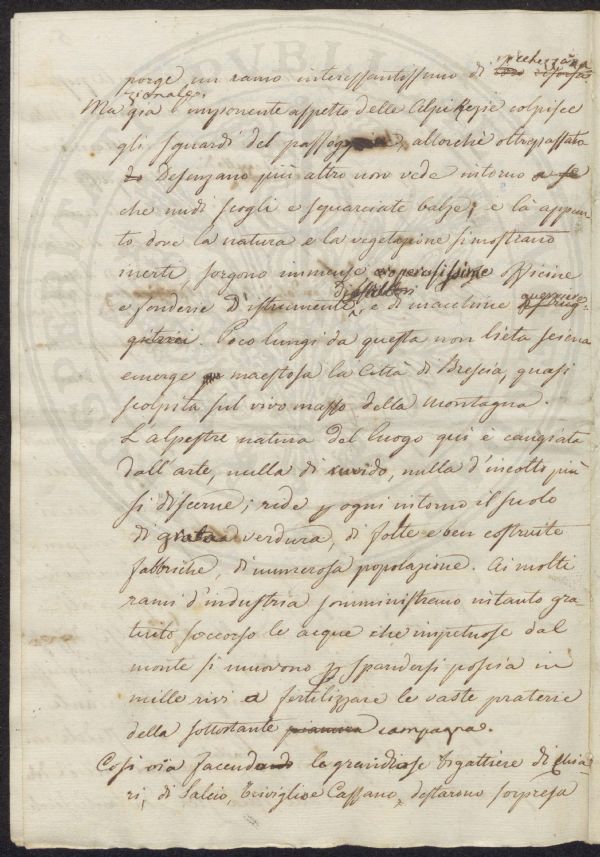 porge un ramo interessantissimo di ricchezza na
zionale.
Ma già l'imponente aspetto delle Alpi Rezie colpisce
gli sguardi del passeggiere, allorchè oltrepassato
Desenzano più altro non vede intorno a se
che nudi scogli e squarciate balze; e là appun
to dove la natura e la vegetazione si mostrano
inerti, sorgono immense operosissime Officine
e fonderie d'istrumenti distruttori e di macchine guerriere
Poco lungi da questa non lieta scena
emerge maestosa la Città di Brescia, quasi
scolpita sul vivo masso della montagna.
L'alpestre natura del luogo qui è cangiata
dall'arte, nulla di ruvido, nulla d'incolto più
si discerne; ride p ogni intorno il suolo
di grata verdura, di folte e ben costruite
fabbriche, di numerosa popolazione. Ai molti
rami d'industria somministrano intanto gra-
tuito soccorso le acque che impetuose dal
monte si muovono p spandersi poscia in
mille rivi a fertilizzare le vaste praterie
della sottostante pianura campagna.
Così via facendo le grandiose Bigattiere di Chia
ri, di Salcio, Triviglio e Cassano, destarono sorpresa